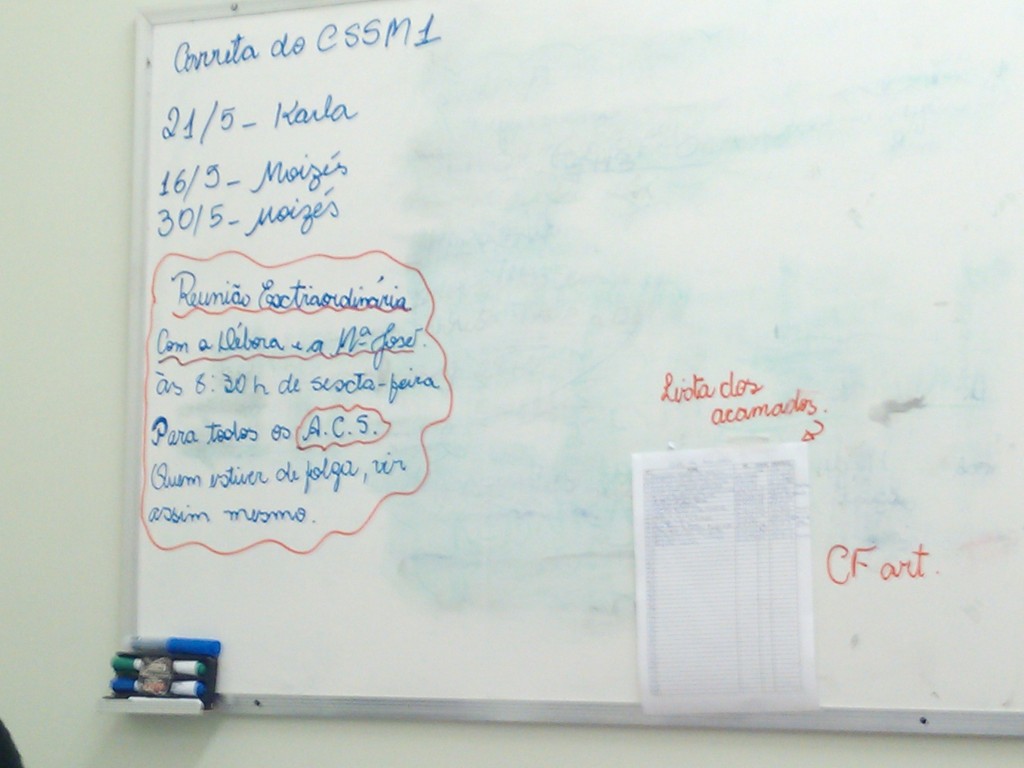 Correta do CSSM1
21/5 - Karla
16/5 - Moizés
30/5 - Moizés
Reunião Esctraordinária
Com a Débora e a Mª José.
às 8:30h de sescta-feira
Para todos os A.C.S.
Quem estiver de folga, vir
assim mesmo.
Lista dos
acamados.
CF art.